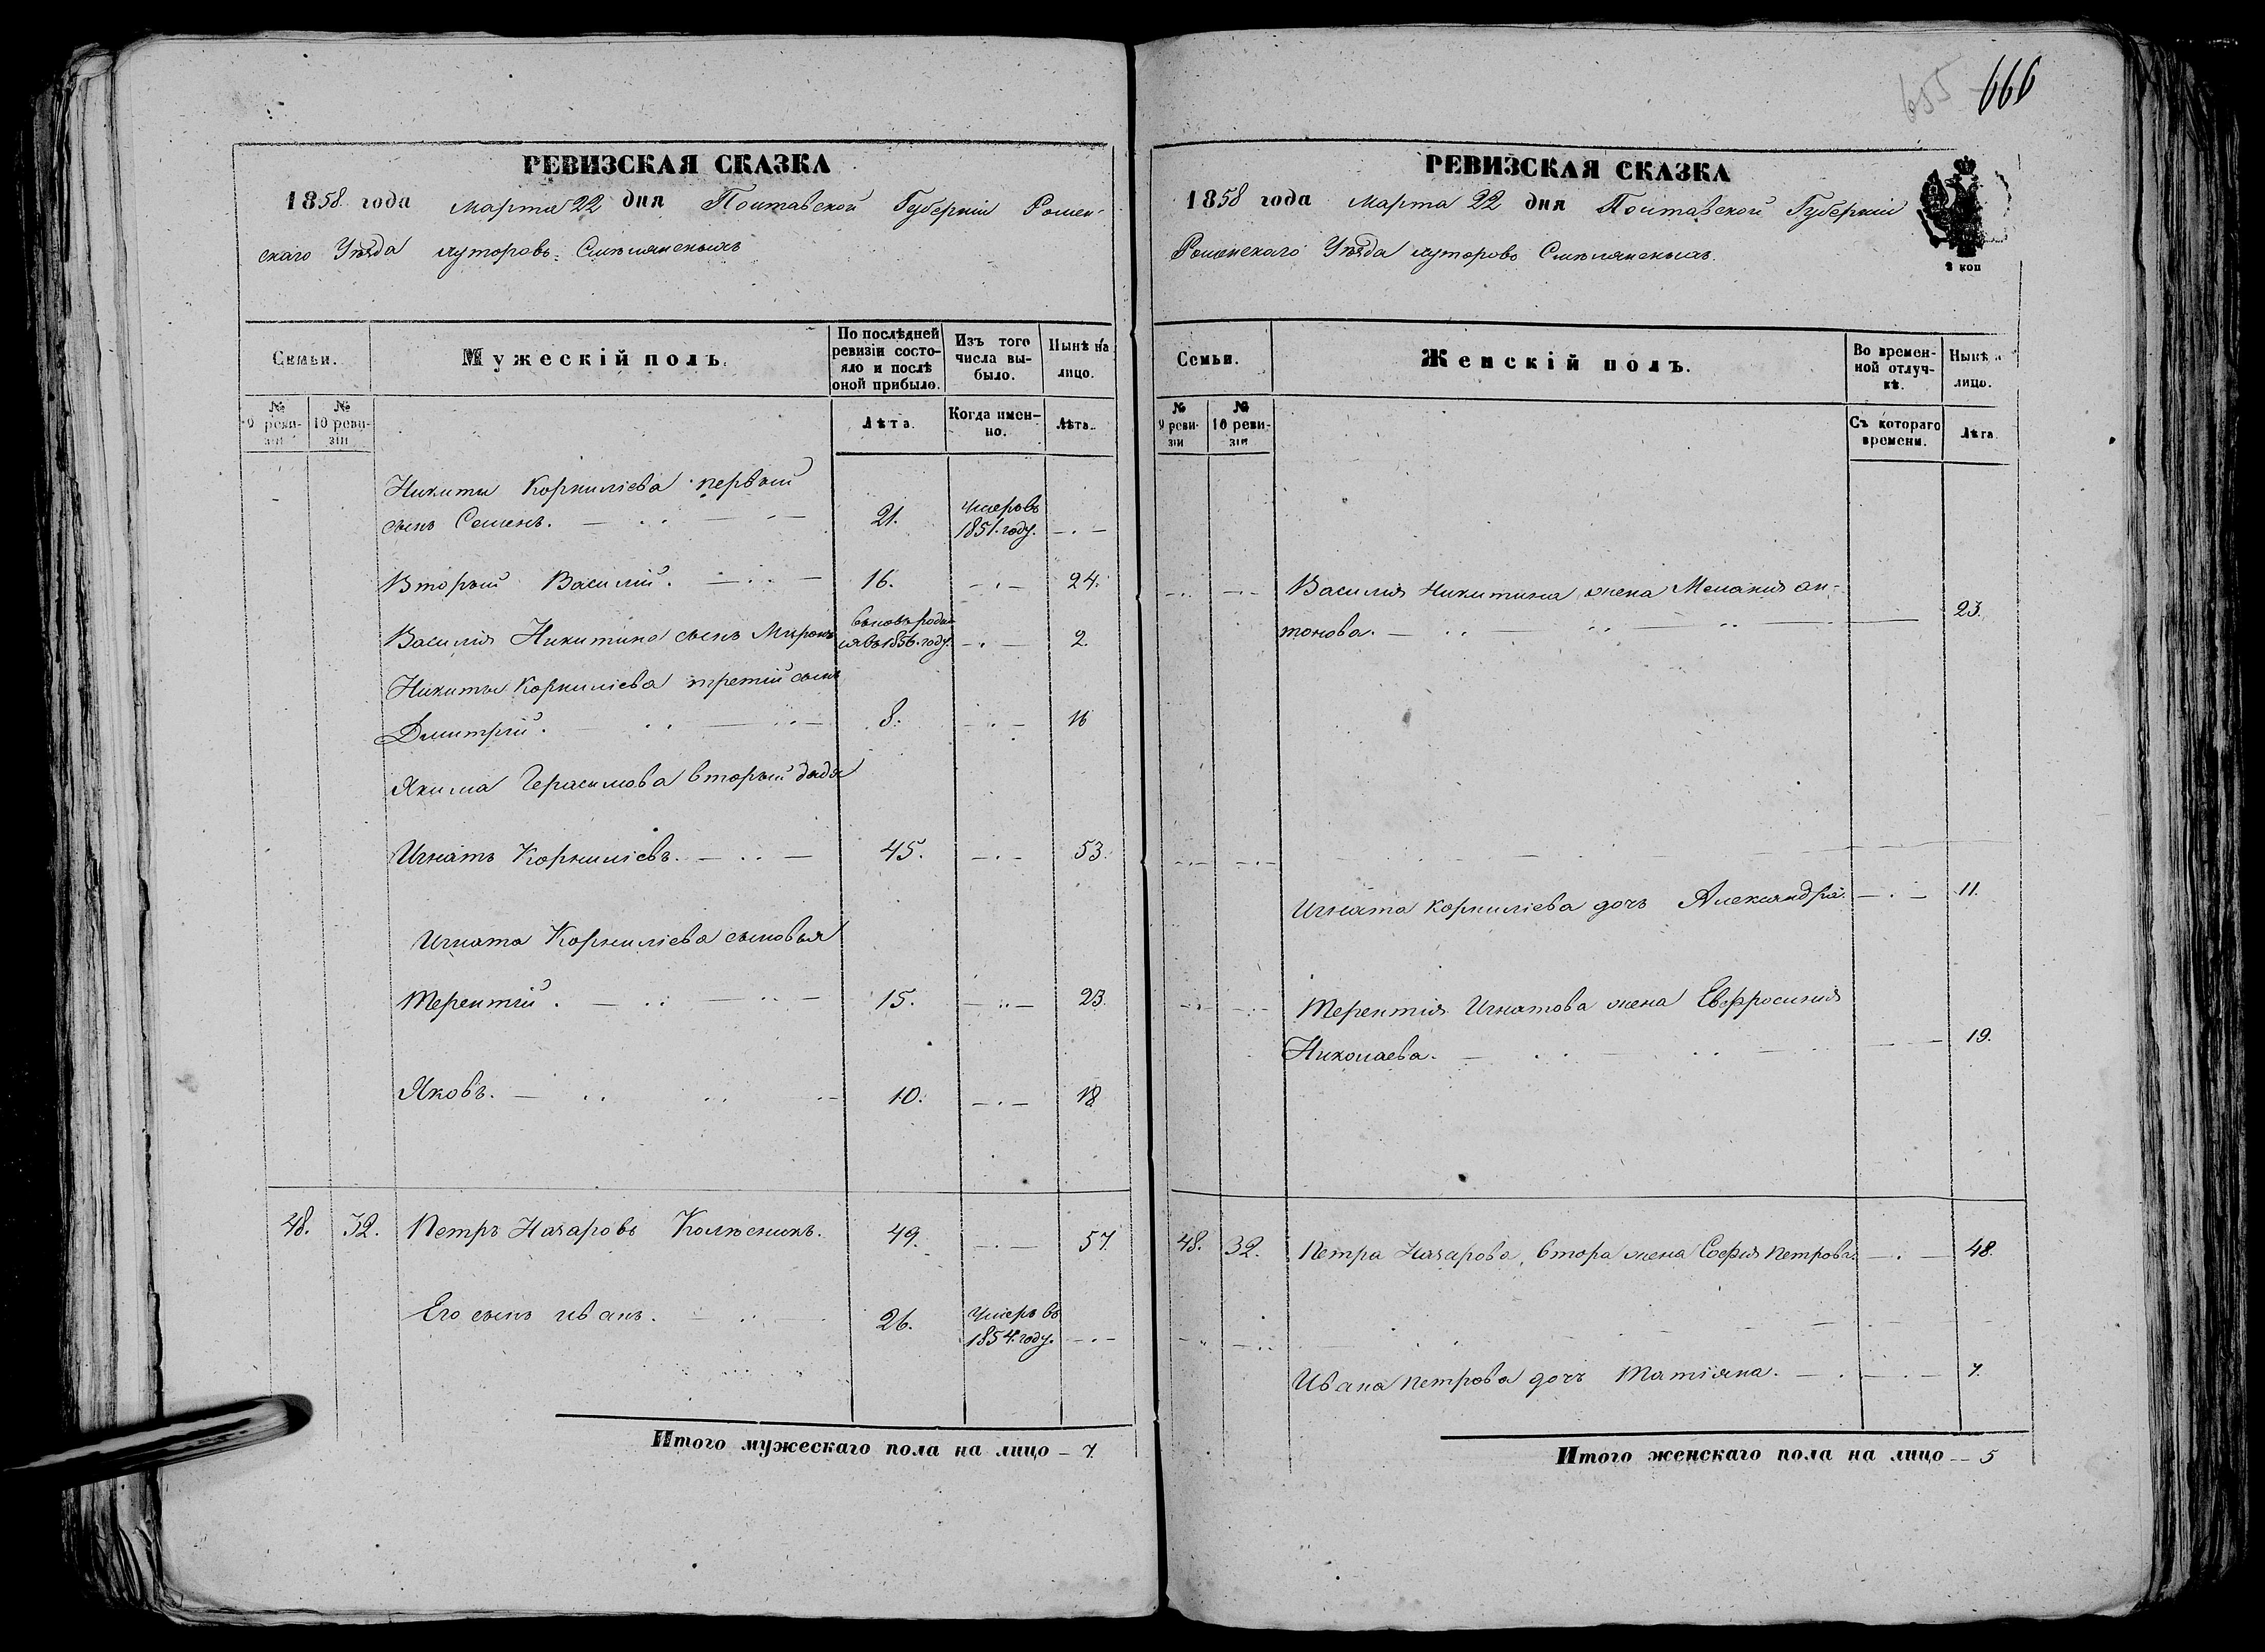 РЕВИЗСКАЯ СКАЗКА
1858 года Марта 22 дня Полтавской Губерніи Ромен-
скаго Уѣзда хуторовъ Смѣлянскихъ
Семьи.
Мужескій полъ.
По послѣдней ревизіи состо-
яло и послѣ
оной прибыло.
Изъ того
числа вы-
было.
Нынѣ на
лицо.
№ 9 реви-
зіи
№ 10 реви-
зіи
Лѣта.
Когда имен-
но.
Лѣта.
Никиты Корниліева первый
сынъ Семенъ. 21. умеръ въ 1851. году.
Вторый Василій. 16. 24.
Василія Никитина сынъ Миронъ вновь родил
ся въ 1856. году. 2.
Никиты Корниліева третій сынъ
Дмитрій. 8. 16
Якима Герасимова вторый дядя
Игнатъ Корниліевъ. 45. 53.
Игната Корниліева сыновья
Терентій. 15. 23.
Яковъ. 10. 18
48. 32. Петръ Назаровъ Колѣсникъ. 49. 57.
Его сынъ иванъ. 26. умеръ въ 1854. году.
Итого мужескаго пола на лицо 7.
655 666
РЕВИЗСКАЯ СКАЗКА
1858 года Марта 22 дня Полтавской Губерніи
Роменскаго Уѣзда хуторовъ Смѣлянскихъ.
2 коп
Семьи.
Женскій полъ.
Во времен-
ной отлуч-
кѣ.
Нынѣ
лицо.
№ 9 реви-
зіи
№ 10 реви-
зіи
Съ котораго
времени.
Лѣта.
Василія Никитина жена Меланія ан-
тонова. 23.
Игната Корниліева дочь Александра. 11.
Терентія Игнатова жена Евфросинія
Николаева. 19.
48. 32. Петра Назарова, втора жена Софія Петрова. 48.
Ивана Петрова дочь Татіяна. 7.
Итого женскаго пола на лицо 5